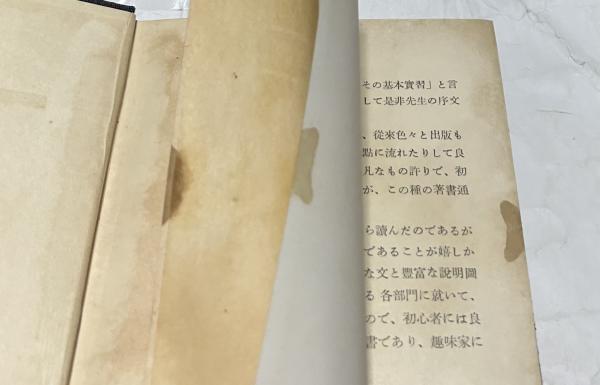 その基本實習」と言
して是非先生の序文
、從來色々と出版も
點に流れたりして良
凡なもの許りで、初
が、この種の著書通
ら讀んだのであるが
であることが嬉しか
な文と豊富な説明圖
る 各部門に就いて、
ので、初心者には良
書であり、趣味家に